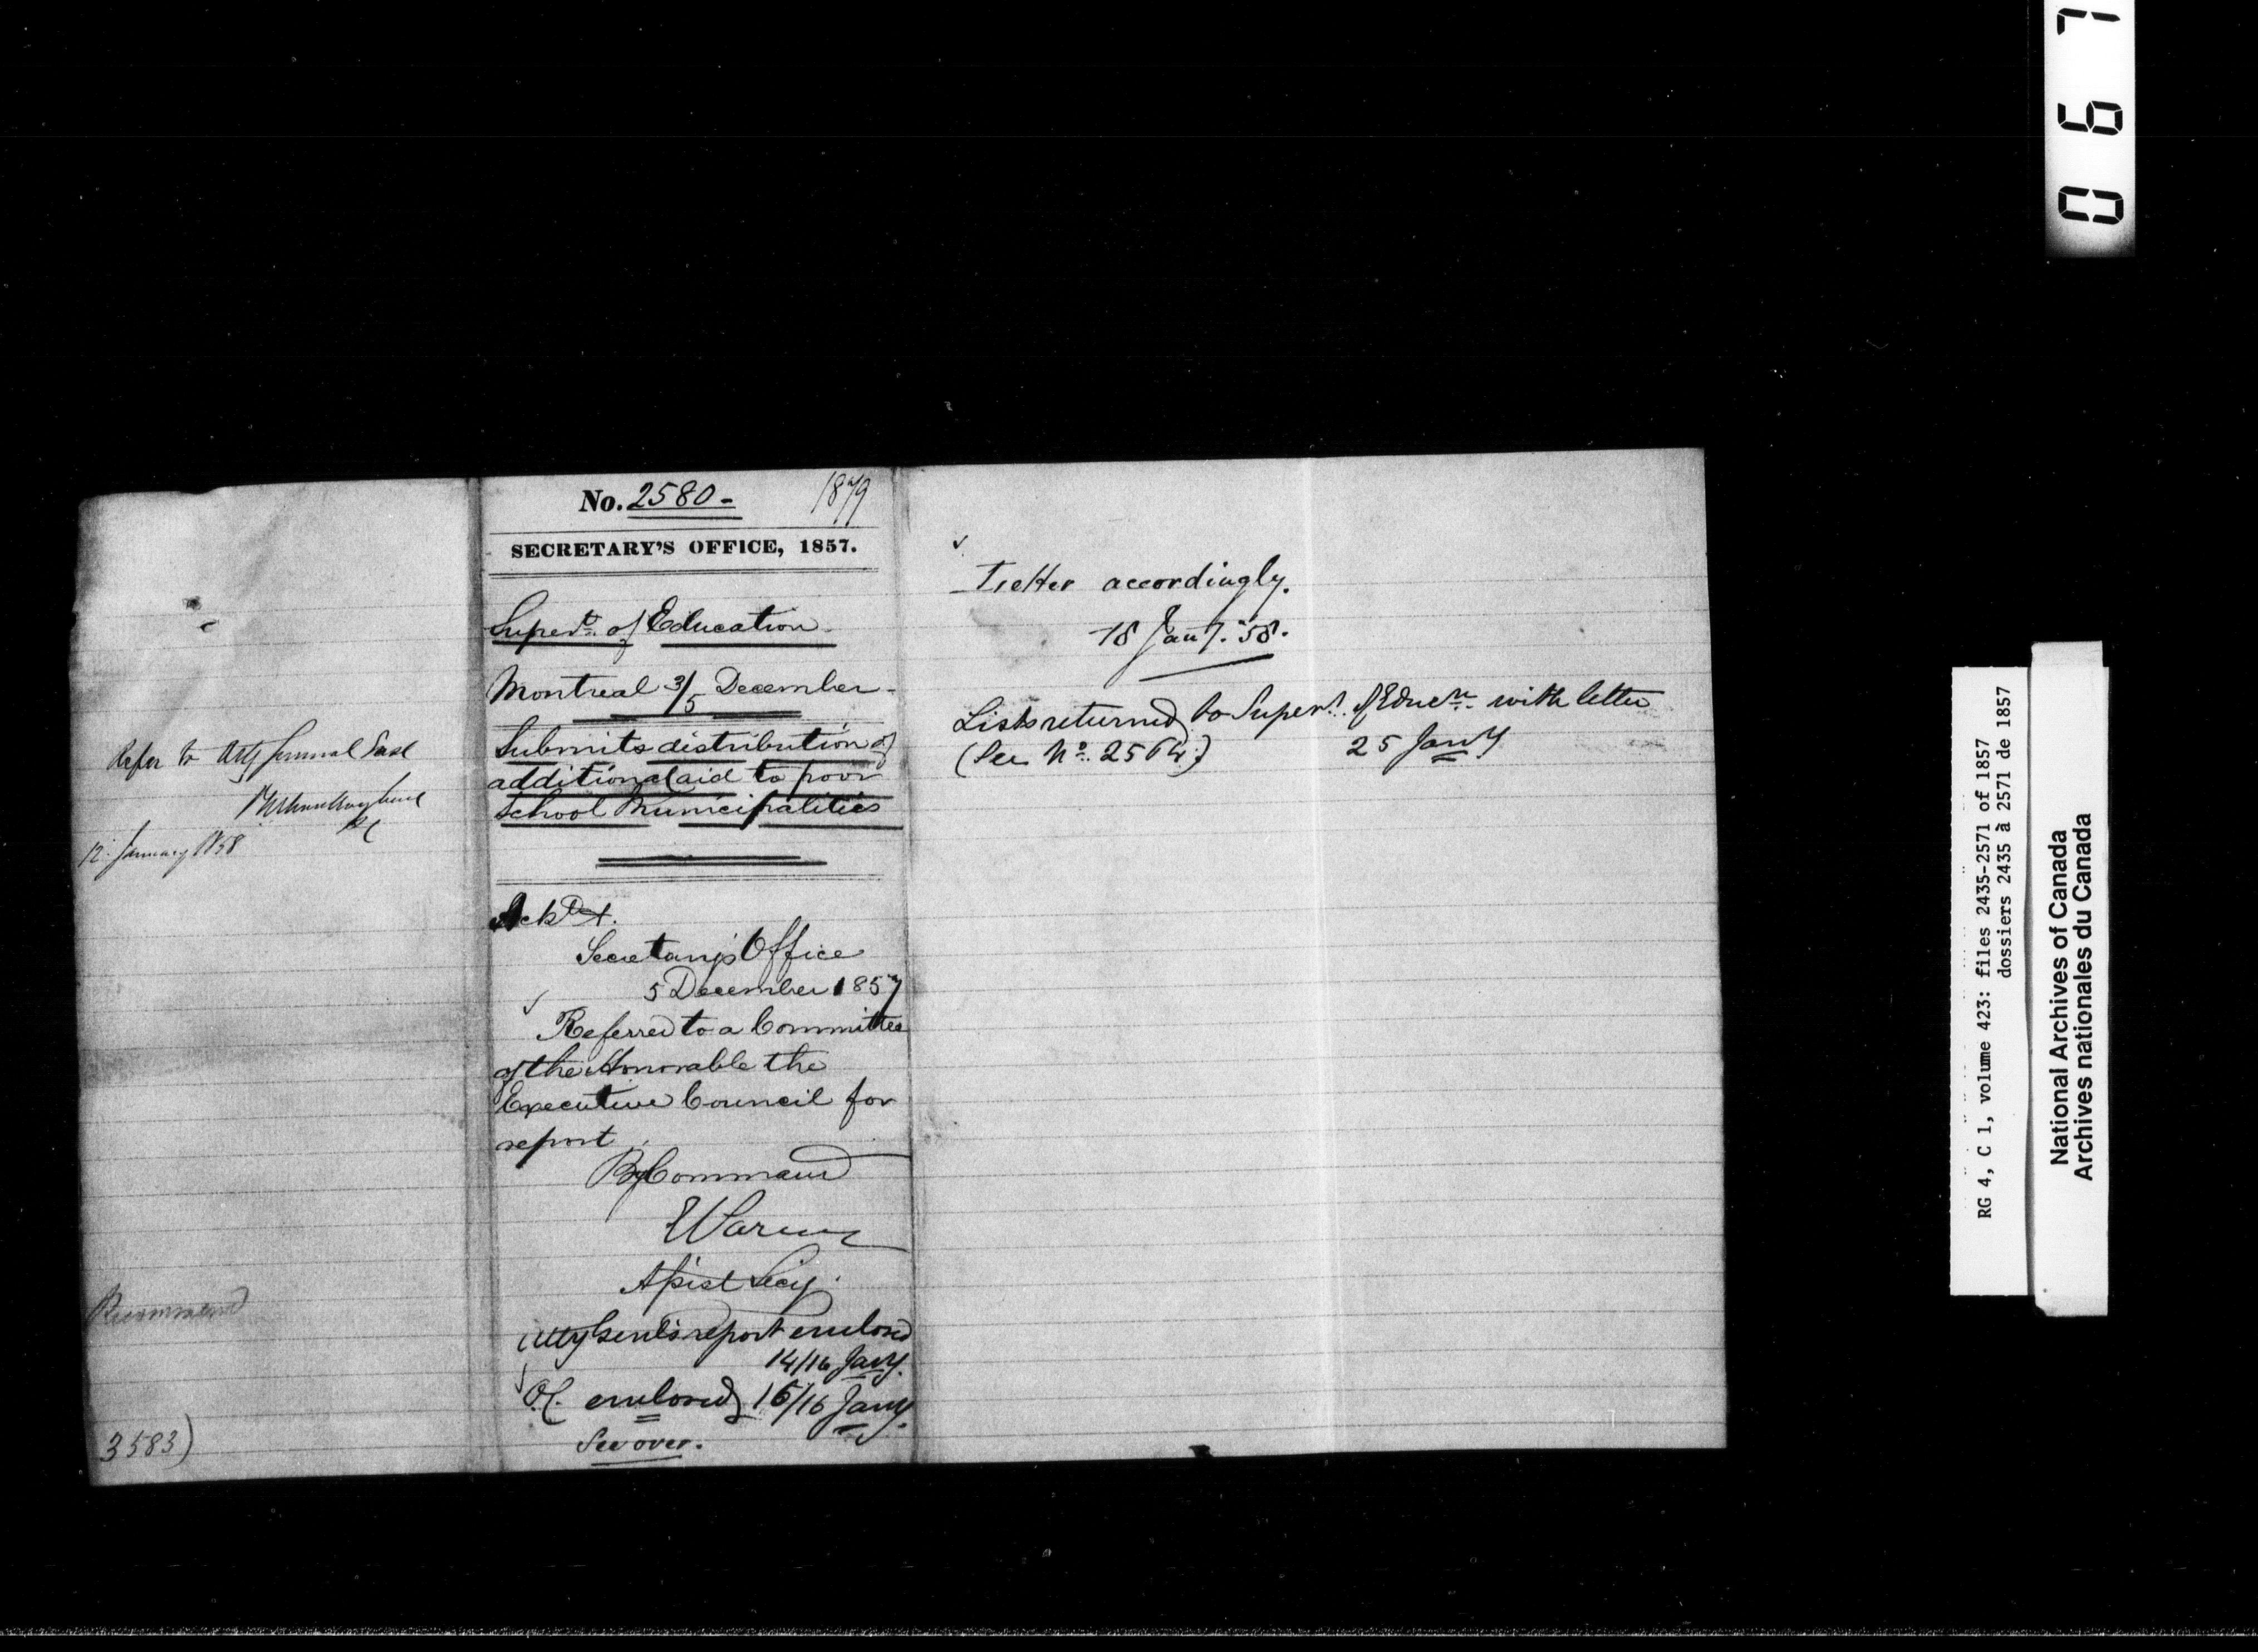 Refer to Atty General East
12 January 1858
Recommend
3583)
No. 2580 -
SECRETARY'S OFFICE, 1857.
Superdt. of Education
Montreal 3/5 December -
Submits distribution of
additional aid to poor
School Municipalities
Ackd
Secretary's Office
5 December 1857
Referred to a Committee
of the Honorable the
Executive Council for
report
By Command
Assist Secy.
Atty Genl's report enclosed
14/16 Jany.
O.C. enclosed 16/16 Jany.
See over.
Letter accordingly.
18 Jany. 58.
Lists returned to Supert. of Educn. with letter
(See No. 2564.) 25 Jany
067
RG 4, C 1, volume 423: files 2435-2571 of 1857
dossiers 2435 à 2571 de 1857
National Archives of Canada
Archives nationales du Canada